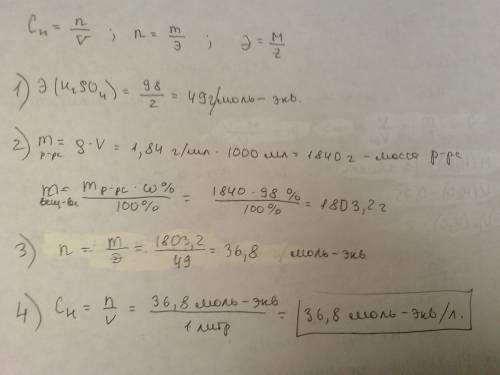 Cн = n/V ; n = m/Э ; Э = M/z
1) Э(H₂SO₄) = 98/2 = 49 г/моль-экв.
2) m р-ра = ρ·V = 1,84 г/мл · 1000 мл = 1840 г - масса р-ра
m вещ-ва = m р-ра · ω% / 100% = 1840 · 98 % / 100% = 1803,2 г
3) n = m/Э = 1803,2/49 = 36,8 моль-экв
4) Cн = n/V = 36,8 моль-экв / 1 литр = 36,8 моль-экв/л.